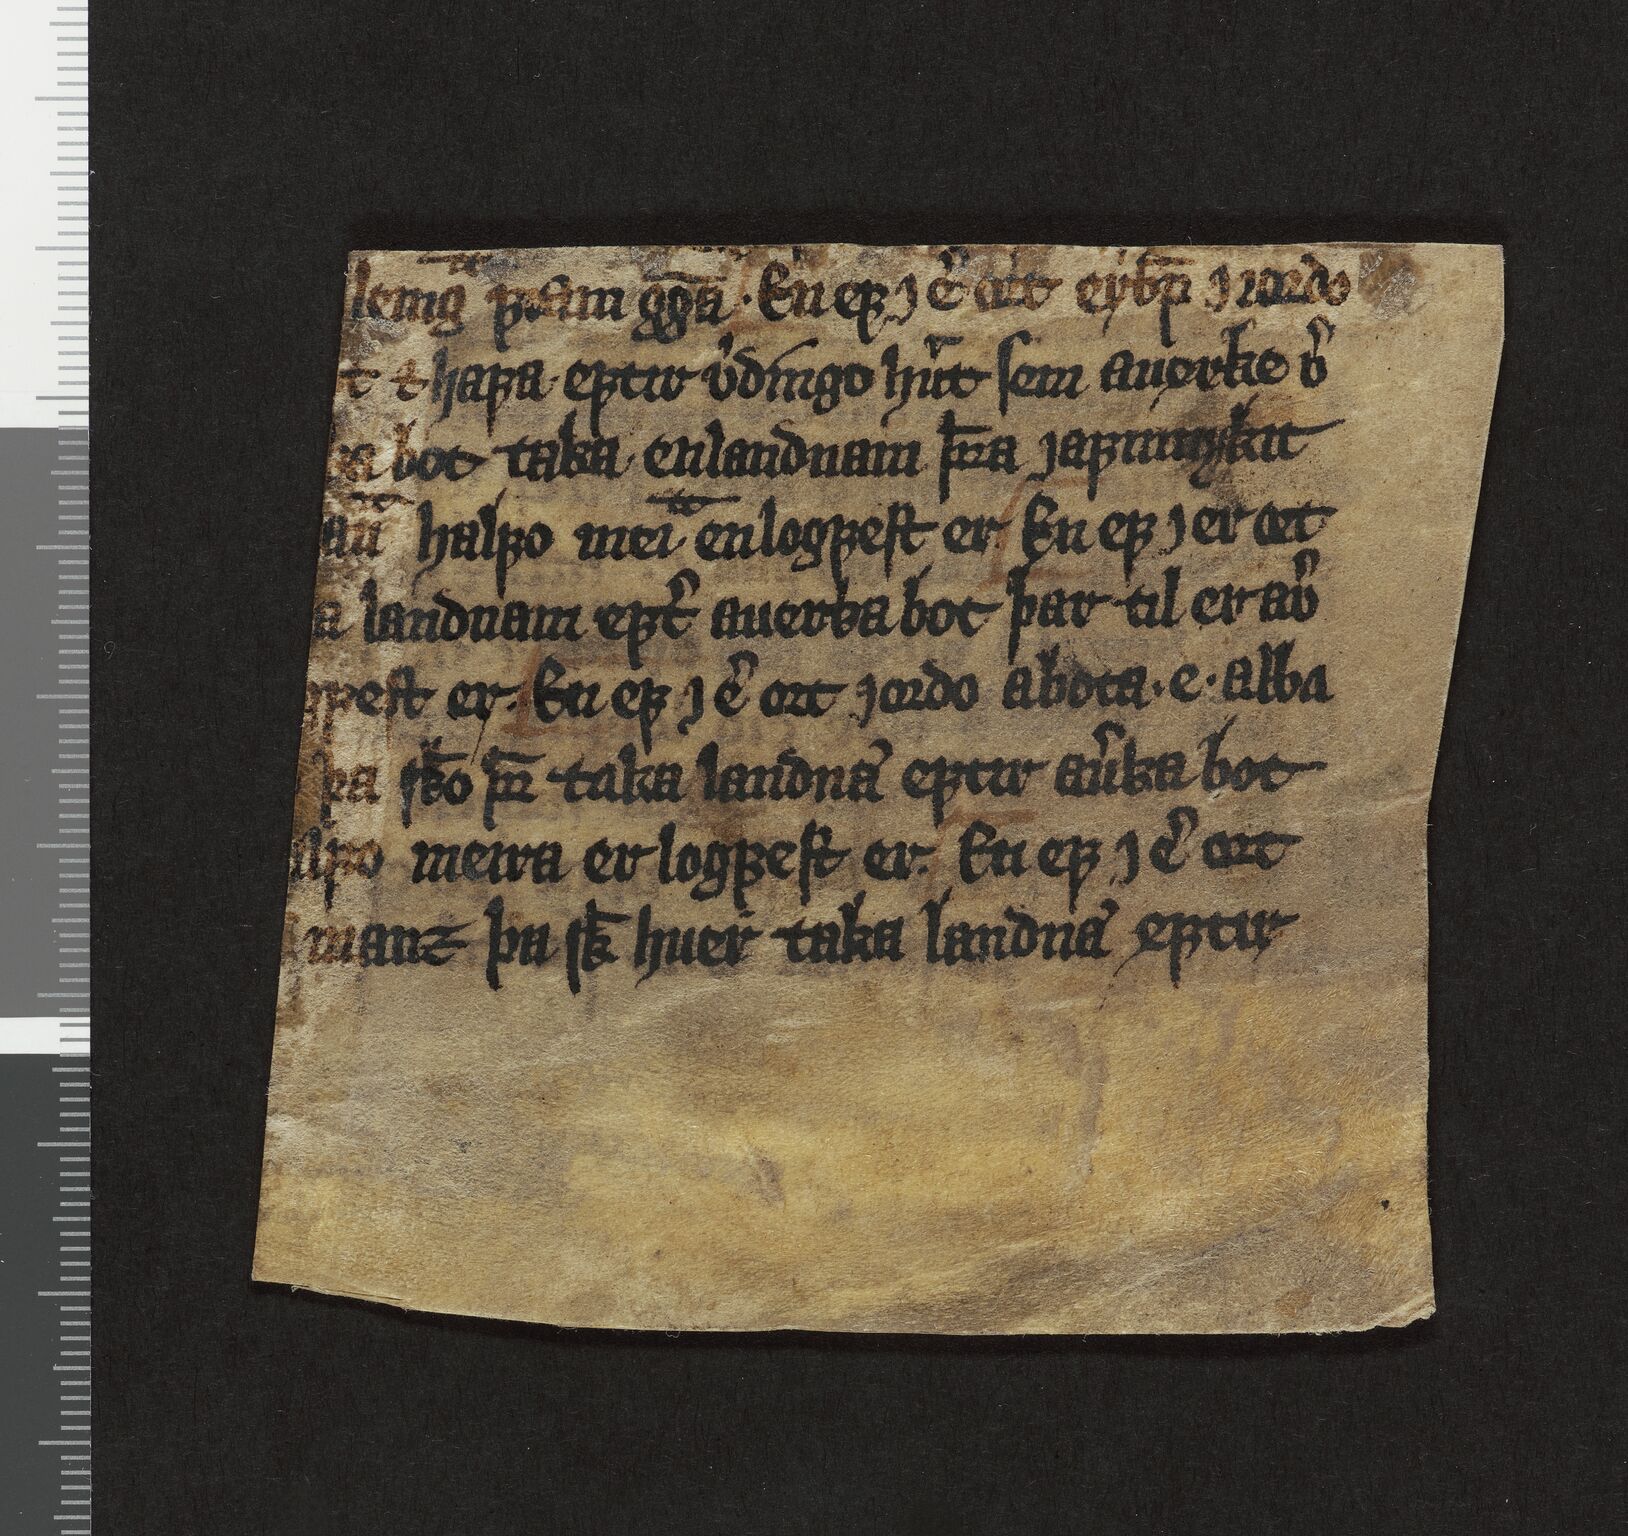 leing fram gg̅a. En ef j e͛ ort eyþn̅ j iordo
t ⁊ hafa. eptir v͛dingo hũt sem auerke v͛
ka bot taka. en landnam þr̅a jafnmykit
au̅ halfo mei. en logfest er. En ef j er ort
a landnam ept͛ auerka bot þar til er av͛
gfest er. En ef j e͛ ort jordo abota. e. alba
þa sk̅o þr̅ taka landna̅ eptir au͛ka bot
alfo meira er logfest er. En ef j e͛ ort
manz þa sk̅ huer taka landna̅ eptir